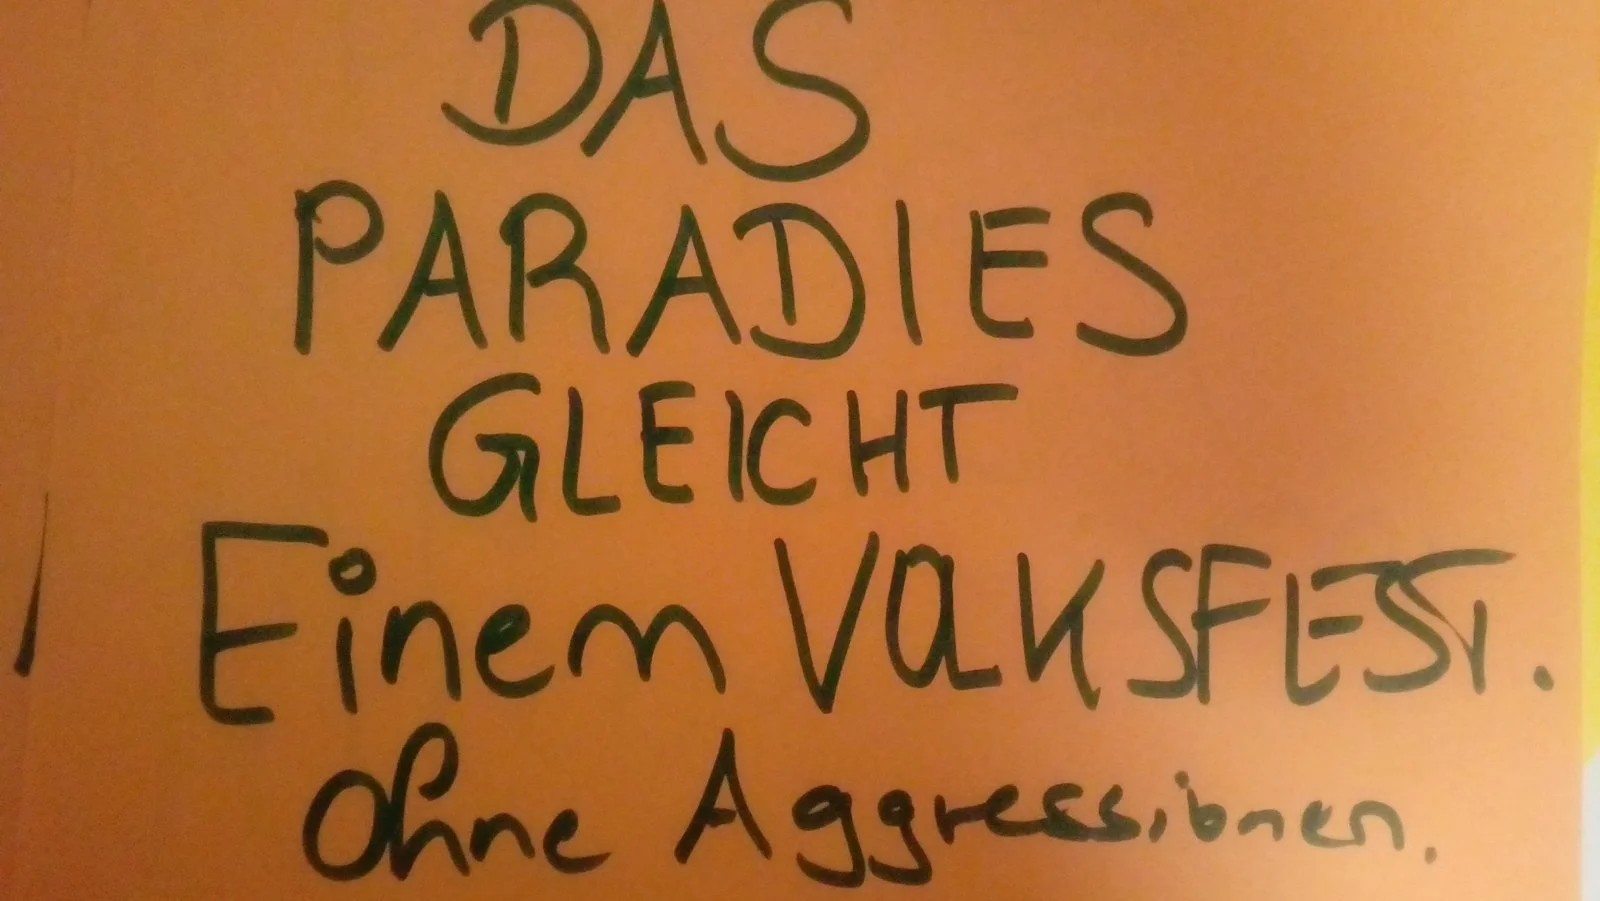 DAS
PARADIES
GLEICHT
Einem VOLKSFEST.
Ohne Aggressionen.